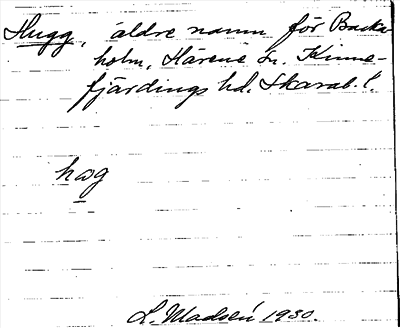 Hugg, äldre namn för Backa-
holm, Härene sn. Kinne-
fjärdings hd. Skarab. l.
hag
L. Madsén 1930.